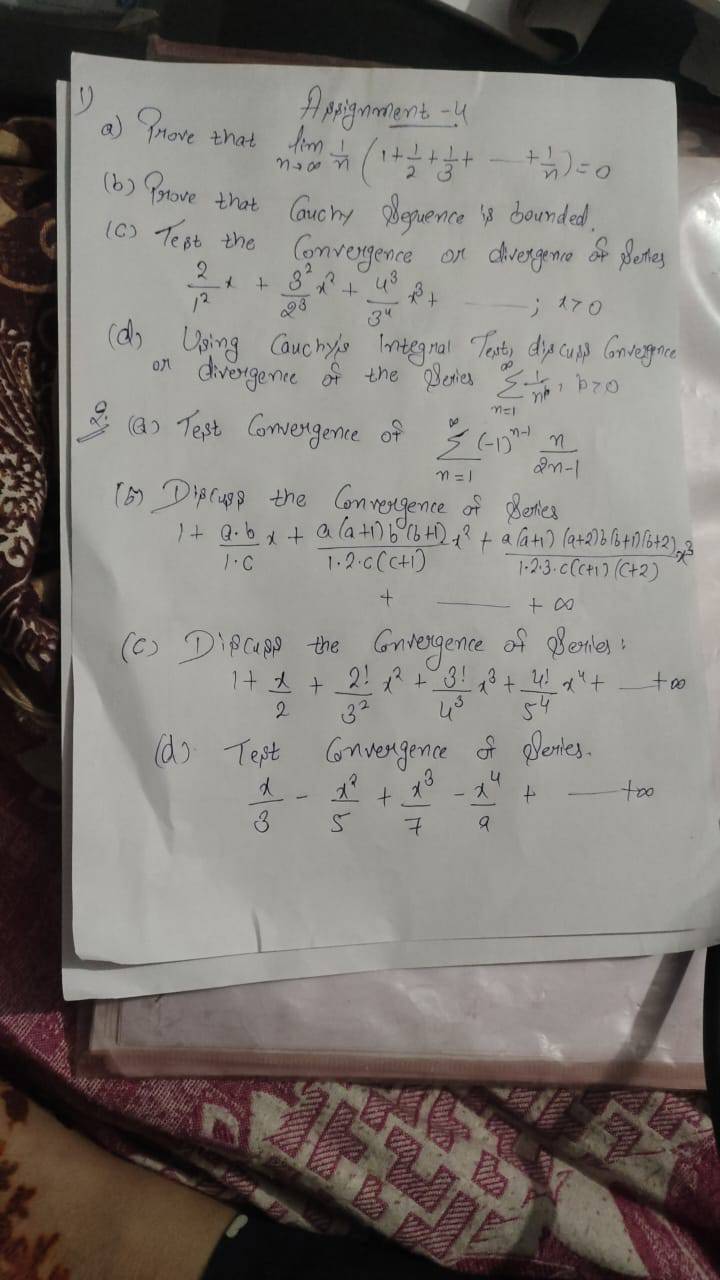 Assignment - 4
1)
a) Prove that lim n→∞ 1/n (1 + 1/2 + 1/3 + — + 1/n) = 0
(b) Prove that Cauchy Sequence is bounded.
(c) Test the Convergence or divergence of Series
2/1² x + 3²/2³ x² + 4³/3⁴ x³ + ——— ; x>0
(d) Using Cauchy's Integral Test, discuss Convergence
or divergence of the Series ∞ Σ n=1 1/nᵖ, p>0
2. (a) Test Convergence of ∞ Σ n=1 (-1)ⁿ⁻¹ n/2n-1
(b) Discuss the Convergence of Series
1 + a.b/1.c x + a(a+1)b(b+1)/1.2.c(c+1) x² + a(a+1)(a+2)b(b+1)(b+2)/1.2.3.c(c+1)(c+2) x³
+ ——— + ∞
(c) Discuss the Convergence of Series:
1 + x/2 + 2!/3² x² + 3!/4³ x³ + 4!/5⁴ x⁴ + — + ∞
(d) Test Convergence of Series.
x/3 - x²/5 + x³/7 - x⁴/9 + —— + ∞